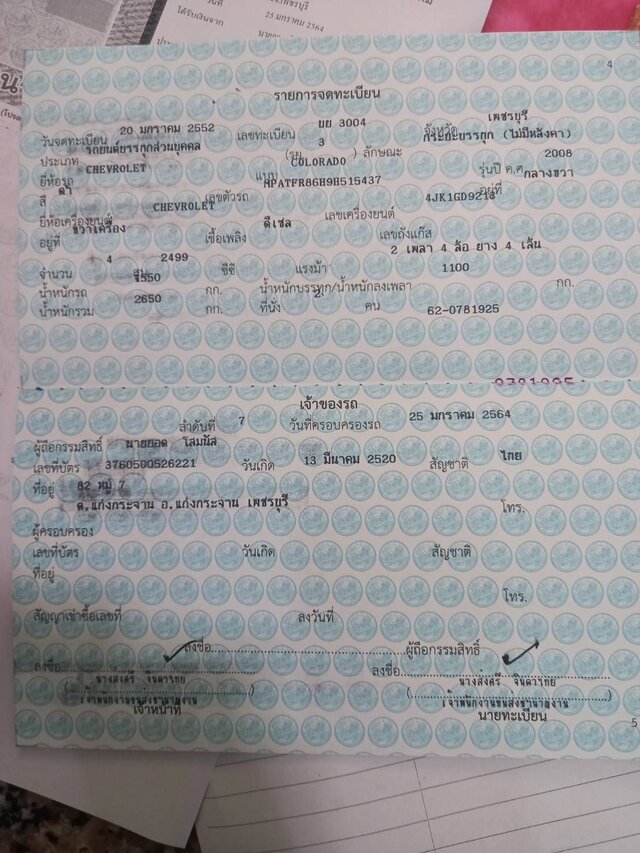 เพชรบุรี
ได้รับเงินจาก
25 มกราคม 2564
4
รายการจดทะเบียน
วันจดทะเบียน 20 มกราคม 2552 เลขทะเบียน บย 3004 จังหวัด เพชรบุรี
ประเภท รถยนต์บรรทุกส่วนบุคคล (รย 3 ) ลักษณะ กระบะบรรทุก (ไม่มีหลังคา)
ยี่ห้อรถ CHEVROLET แบบ COLORADO รุ่นปี ค.ศ 2008
สี ดำ เลขตัวรถ MPATFR86H9H515437 อยู่ที่ กลางขวา
ยี่ห้อเครื่องยนต์ CHEVROLET เลขเครื่องยนต์ 4JK1GD9213
อยู่ที่ ขวาเครื่อง เชื้อเพลิง ดีเซล เลขถังแก๊ส
จำนวน 4 สูบ 2499 ซีซี แรงม้า 2 เพลา 4 ล้อ ยาง 4 เส้น
น้ำหนักรถ 1550 กก. น้ำหนักบรรทุก/น้ำหนักลงเพลา 1100 กก.
น้ำหนักรวม 2650 กก. ที่นั่ง 2 คน 62-0781925
เจ้าของรถ
ลำดับที่ 7 วันที่ครอบครองรถ 25 มกราคม 2564
ผู้ถือกรรมสิทธิ์ นายยอด โสมนัส
เลขที่บัตร 3760500526221 วันเกิด 13 มีนาคม 2520 สัญชาติ ไทย
ที่อยู่ 82 หมู่ 7
ต.แก่งกระจาน อ.แก่งกระจาน เพชรบุรี โทร.
ผู้ครอบครอง
เลขที่บัตร วันเกิด สัญชาติ
ที่อยู่
โทร.
สัญญาเช่าซื้อเลขที่ ลงวันที่
ลงชื่อ ผู้ถือกรรมสิทธิ์
ลงชื่อ ลงชื่อ
เจ้าหน้าที่ นายทะเบียน
5